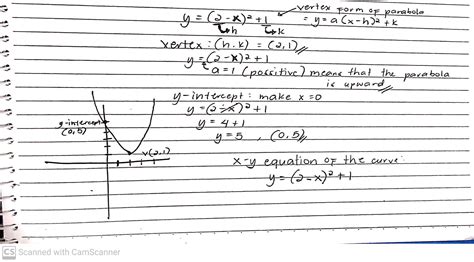 vertex form of parabola
y = (2-x)² + 1 = y = a(x-h)² + k
h k
vertex : (h,k) = (2,1)
y = (2-x)² + 1
a = 1 (possitive) means that the parabola
is upward
y-intercept : make x = 0
y = (2-x)² + 1
y = 4 + 1
y = 5 , (0,5)
y-intercept
(0,5)
v(2,1)
x-y equation of the curve:
y = (2-x)² + 1
CS Scanned with CamScanner